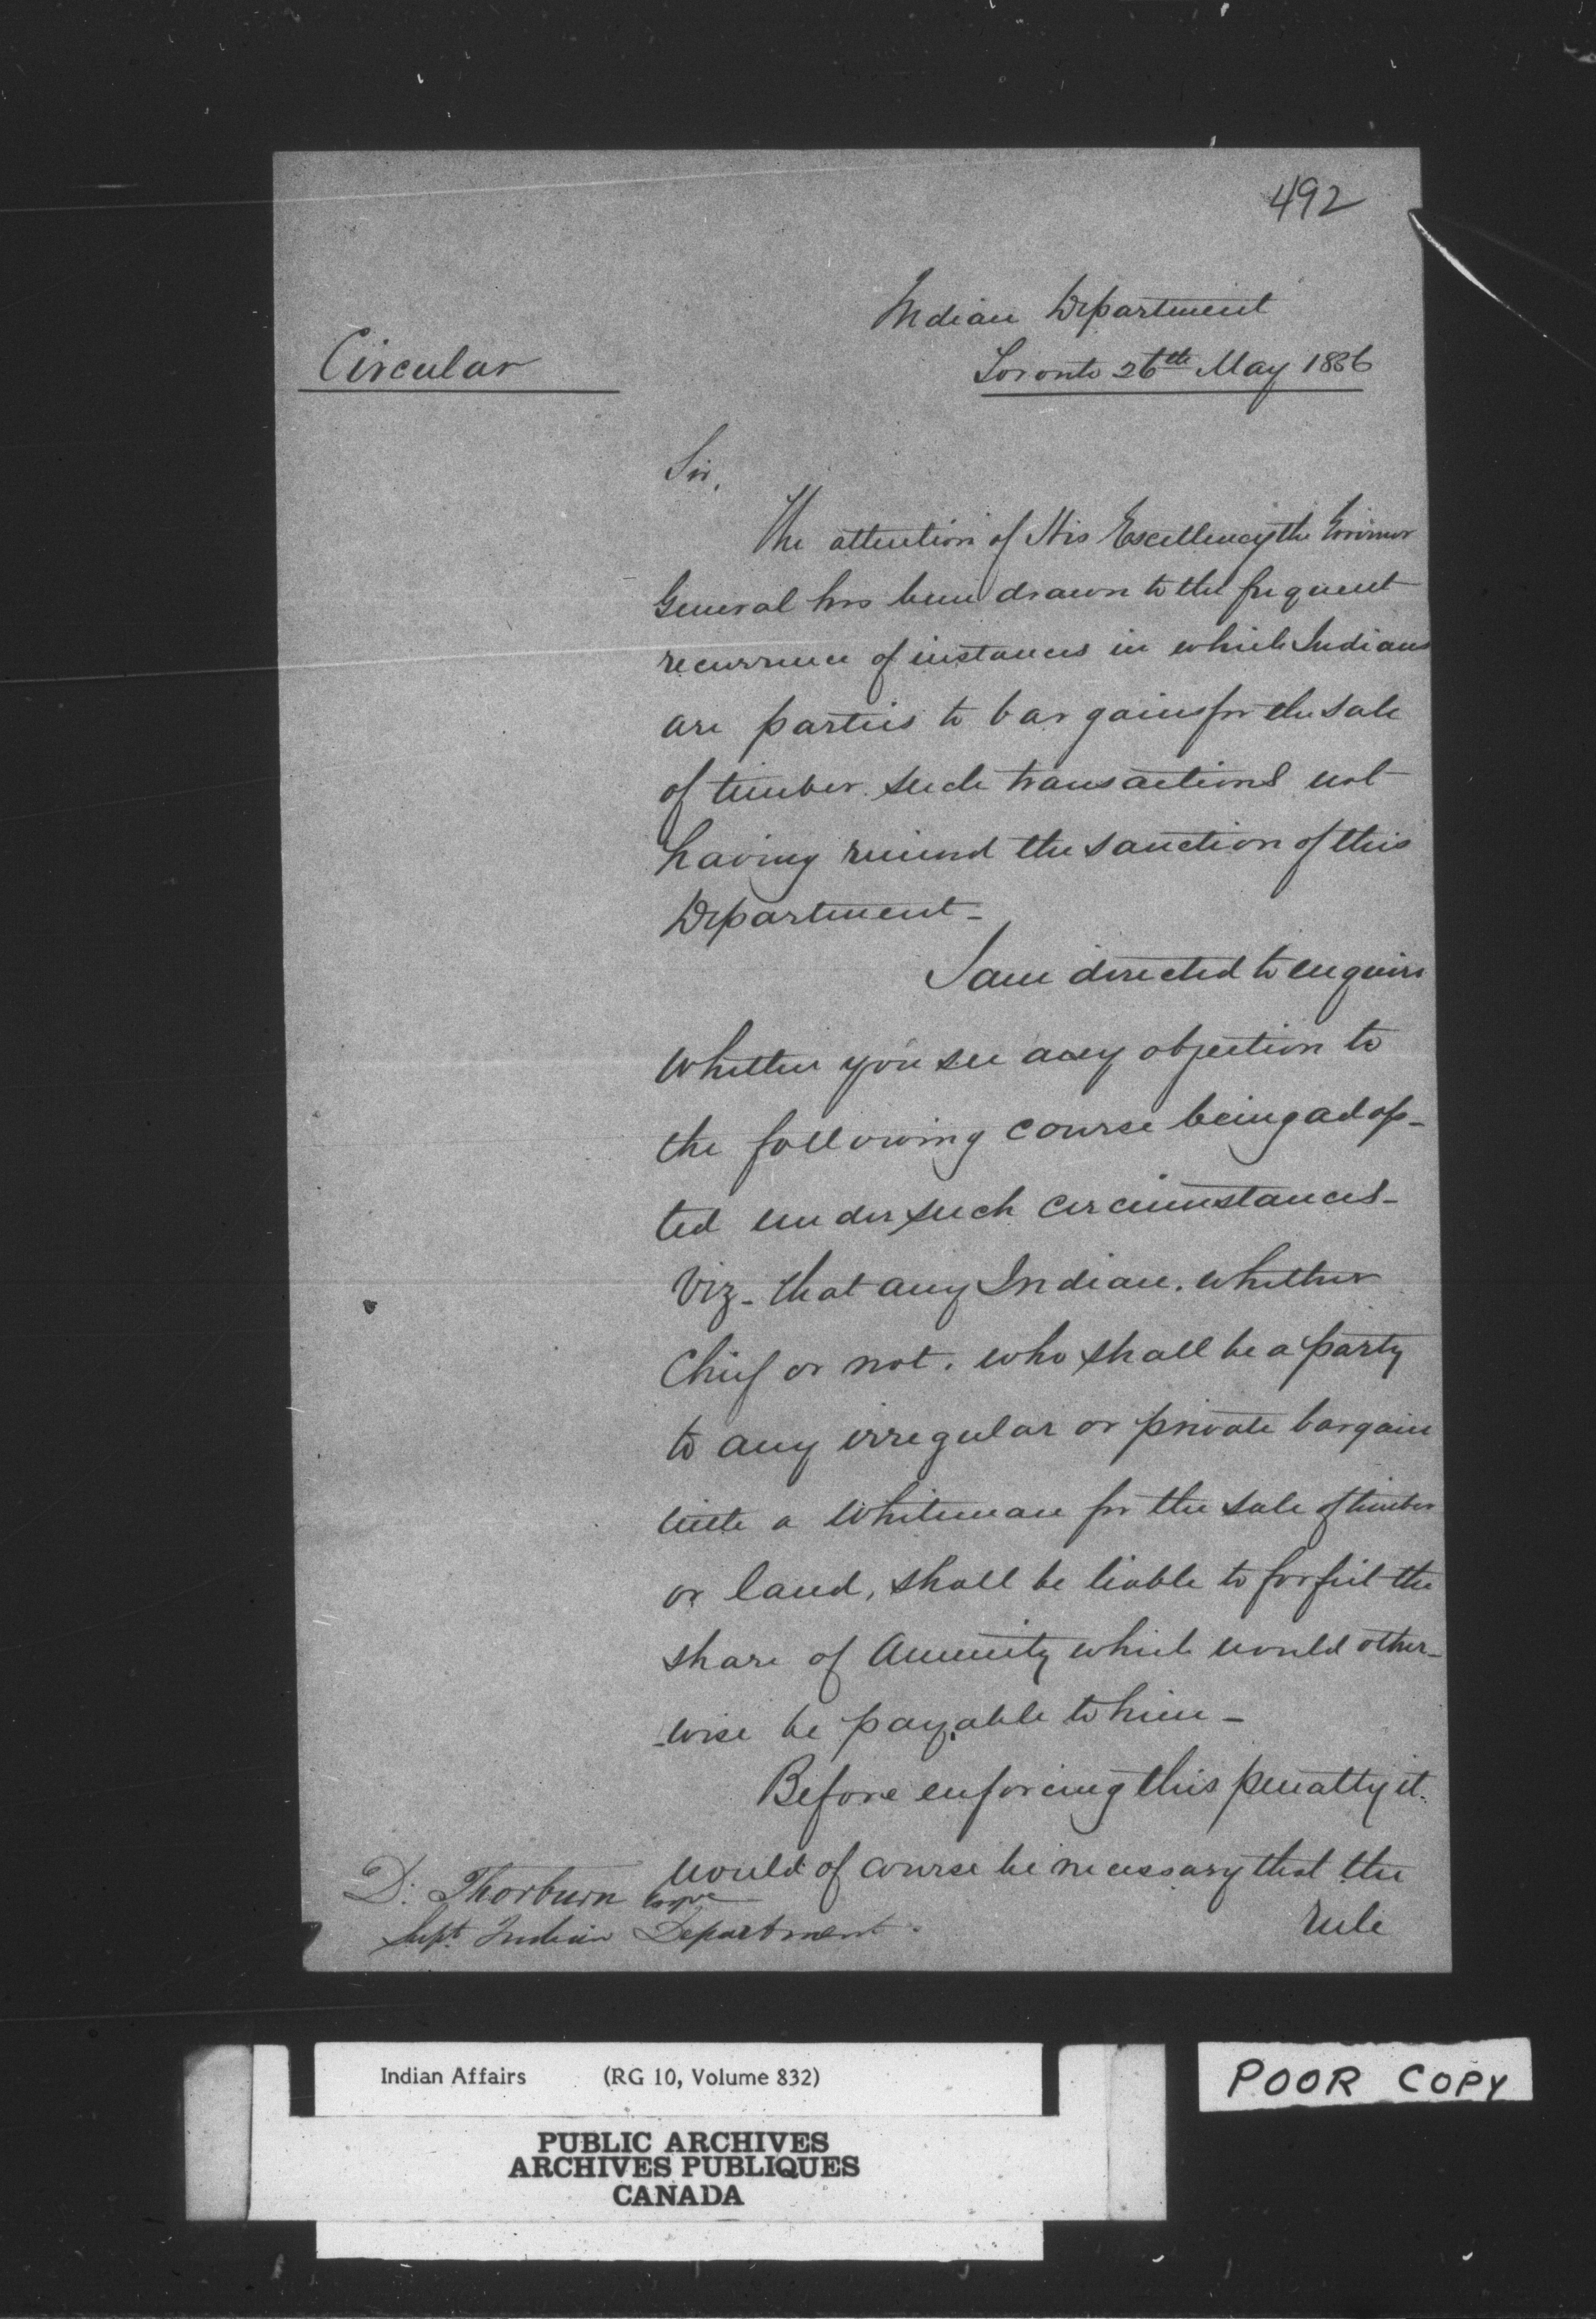 492
Indian Department
Circular
Toronto 26th May 1856
Sir,
The attention of His Excellency the Governor
General has been drawn to the frequent
recurrence of instances in which Indians
are parties to bargains for the sale
of timber. such transactions not
having received the sanction of this
Department -
I am directed to enquire
whether you see any objection to
the following course being adop-
ted under such circumstances -
Viz - that any Indian. whether
Chief or not. who shall be a party
to any irregular or private bargain
with a Whiteman for the sale of timber
or land, shall be liable to forfeit the
share of Annuity which would other-
-wise be payable to him -
Before enforcing this penalty it
would of course be necessary that the
rule
D. Thorburn Esqre
Supt. Indian Department.
Indian Affairs (RG 10, Volume 832)
PUBLIC ARCHIVES
ARCHIVES PUBLIQUES
CANADA
POOR COPY